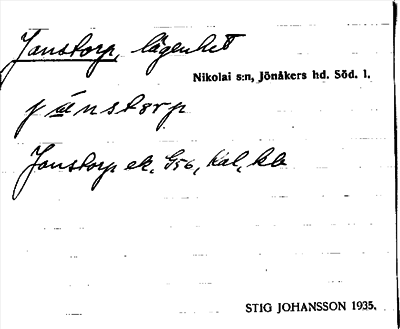 Janstorp, lägenhet
Nikolai s:n, Jönåkers hd. Söd. l.
Janstorp ek. G56, Kal, kb
STIG JOHANSSON 1935.